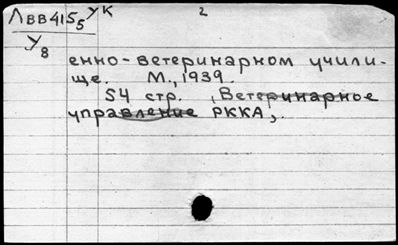 ЛВВ4155 УК 2
У8
енно-ветеринарном учили-
ще. М., 1939.
54 стр. , Ветеринарное
управление РККА,.